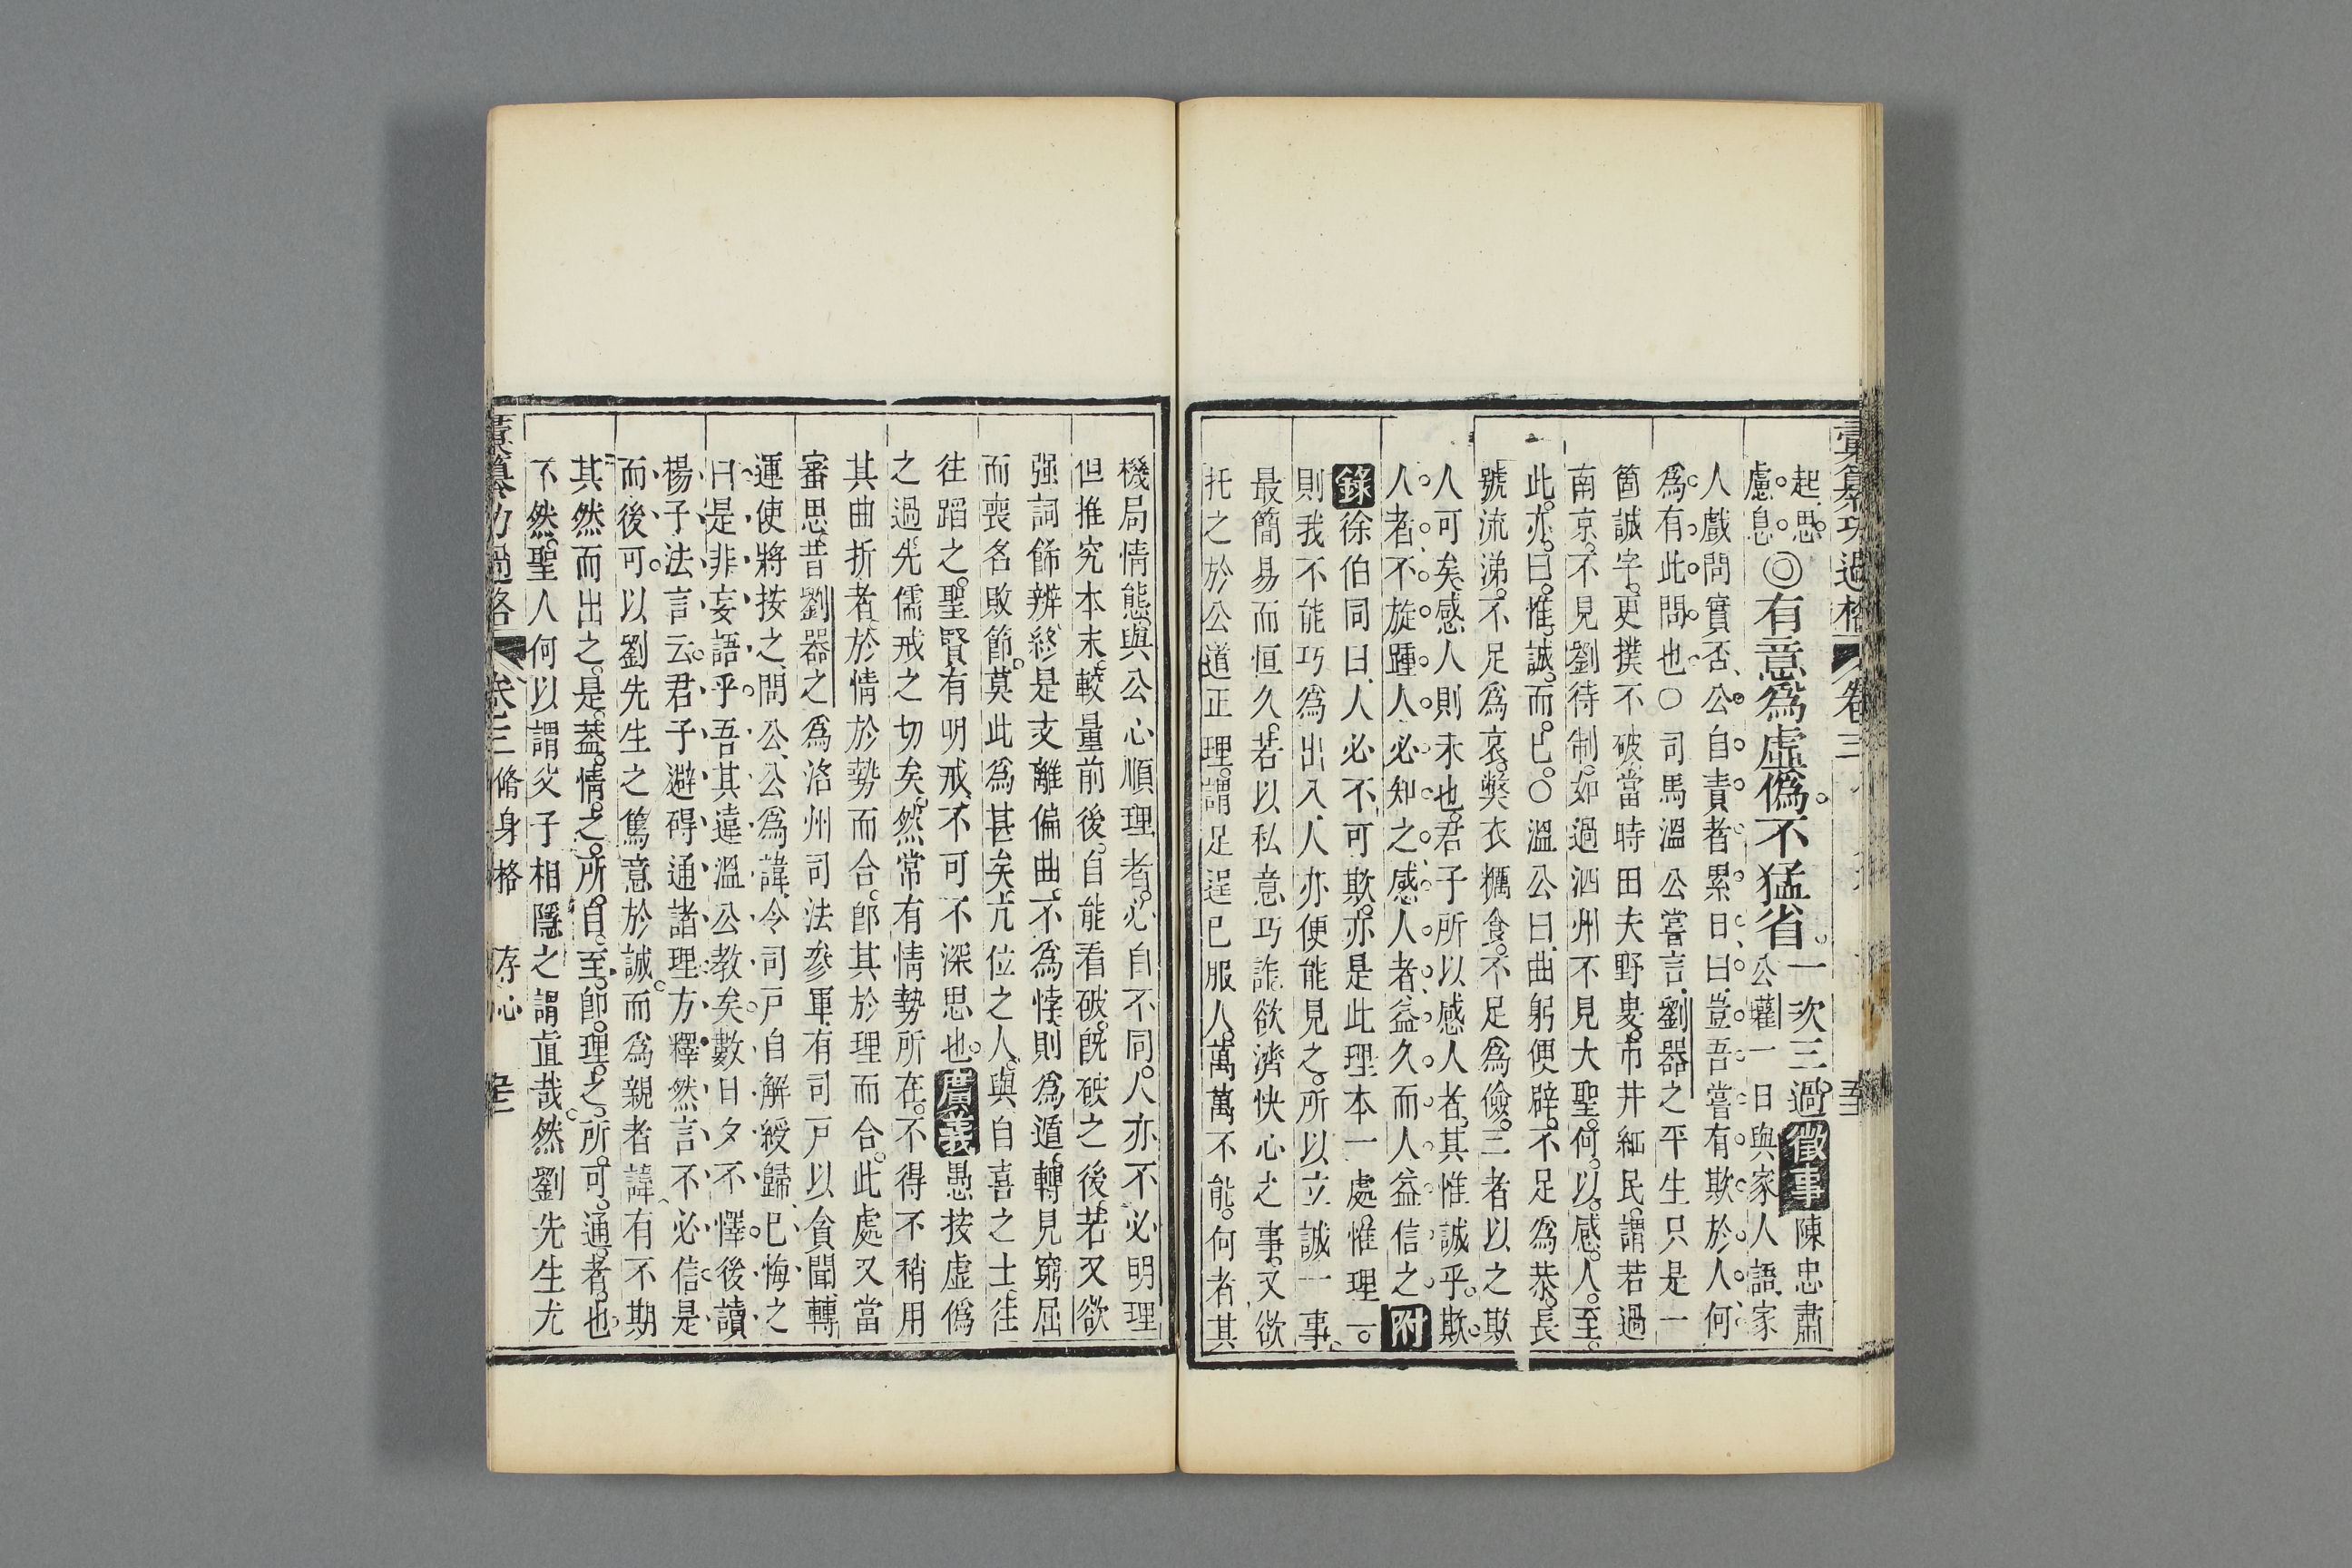 彙纂功過格 卷三
起思。
慮息。◎有意爲虛僞。不猛省。一次三過。徵事陳忠肅
公瓘一日與家人語家
人戲問實否、公自責者累日、曰、豈吾嘗有欺於人何
爲有此問也○司馬溫公嘗言劉器之平生只是一
箇誠字。更撲不破。當時田夫野叟。市井細民。謂若過
南京。不見劉待制。如過泗州不見大聖。何以感人至
此。亦曰。惟誠而已。○溫公曰。曲躬便辟。不足爲恭。長
號流涕。不足爲哀。獘衣糲食。不足爲儉。三者以之欺
人可矣。感人則未也。君子所以感人者。其惟誠乎。欺
人者。不旋踵人必知之。感人者。益久而人益信之 附
錄徐伯同曰、人必不可欺。亦是此理本一處。惟理一。
則我不能巧爲出入、人亦便能見之。所以立誠一事、
最簡易而恒久。若以私意巧詐。欲濟快心之事。又欲
托之於公道正理。謂足逞巳服人。萬萬不能。何者其
機局情態。與公心順理者。心自不同。人亦不必明理
但推究本末。較量前後。自能看破。旣破之後。若又欲
强詞飾辨。終是支離偏曲。不爲悖、則爲遁。轉見窮屈
而喪名敗節。莫此爲甚矣。亢位之人。與自喜之士。往
往蹈之。聖賢有明戒、不可不深思也。廣義愚按虛僞
之過。先儒戒之切矣。然常有情勢所在。不得不稍用
其曲折者。於情於勢而合。卽其於理而合。此處又當
審思。昔劉器之爲洛州司法參軍、有司戸以貪聞、轉
運使將按之、問公、公爲諱、令司戸自解綬歸、巳悔之
曰、是非妄語乎。吾其違溫公教矣、數日夕不懌。後讀
楊子法言云。君子避碍通諸理。方釋然。言不必信。是
而後可。以劉先生之篤意於誠。而爲親者諱、有不期
其然而出之。是葢情之所自至。卽理之所可通者也
不然。聖人何以謂父子相隱之謂直哉。然劉先生尤
彙纂功過格 卷三 脩身格 存心